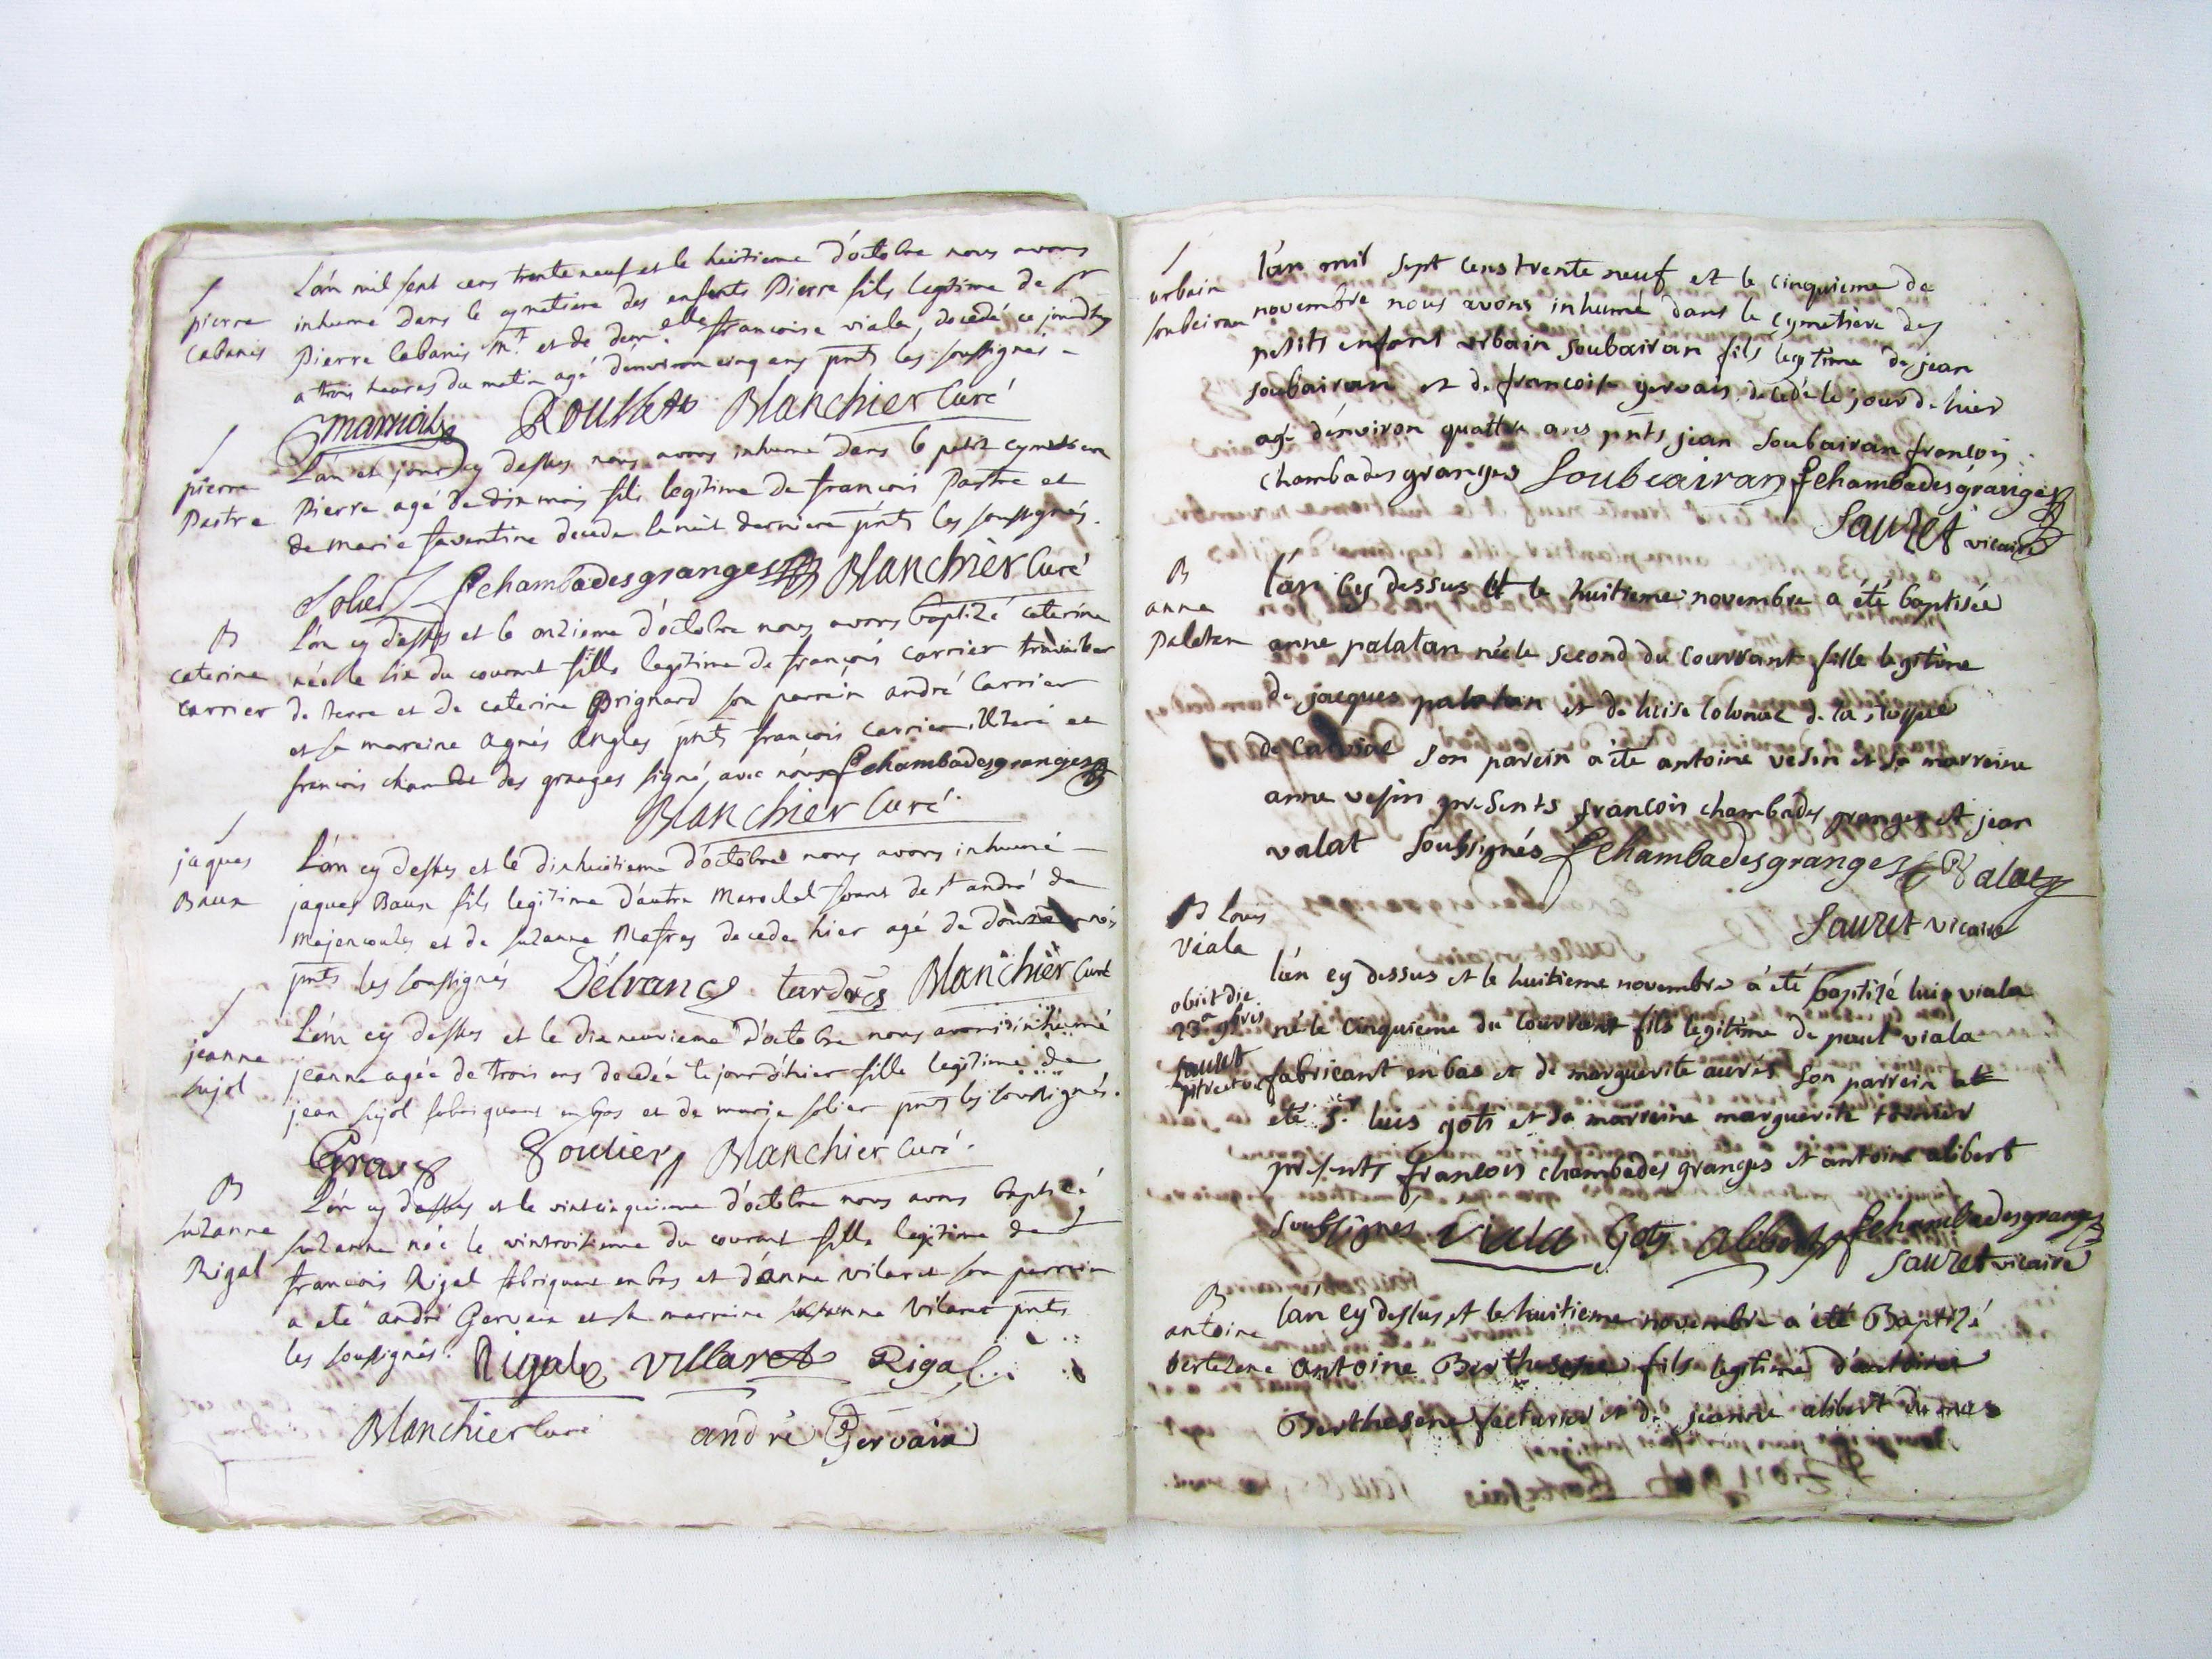 L'an mil sept cens trente neuf et le huitieme d'octobre nous avons
pierre
cabanis
inhumé dans le cymetiere des enfents Pierre fils legitime de Sr
Pierre Cabanis mt et de demelle francoise viala, decedé ce jourdhuy
a trois heures du matin agé d'environ cinq ans pnts les soussignés
martial Rousset Blanchier Curé
L'an et jour cy dessus nous avons inhumé dans le petit cymetiere
pierre
Pastre
Pierre agé de dix mois fils legitime de francois Pastre et
de marie faventine decedé la nuit derniere pnts les soussignés.
Solier fchambadesgranges Blanchier Curé
B
caterine
carrier
L'an cy dessus et le onzieme d'octobre nous avons baptizé caterine
née le six du courant fille legitime de françois carrier travailleur
de terre et de caterine Brignard son parrein andré Carrier
et sa marreine agnés Angles pnts françois carrier illiteré et
francois chambe des granges signé avec nous fchambadesgranges
Blanchier Curé
jaques
Baux
L'an cy dessus et le dixhuitieme d'octobre nous avons inhumé
jaques Baux fils legitime d'autre de st andré de
majencoules et de suzanne decedé hier agé de douze années
pnts les soussignés Delrancq tardres Blanchier Curé
jeanne
sujol
L'an cy dessus et le dixneuvieme d'octobre nous avons inhumé
jeanne agée de trois ans decedée le jour d'hier fille legitime de
jean sujol fabriquant en bas et de marie solier pnts les soussignés.
Gras Soulier Blanchier Curé.
B
suzanne
Rigal
L'an cy dessus et le vintcinquieme d'octobre nous avons baptizé
suzanne née le vintroisieme du courant fille legitime de
francois Rigal fabriquant en bas et d'anne vilaret son parrein
a eté andré Gervais et sa marreine suzanne Vilaret pnts
les soussignés. Rigal villaret Rigal
Blanchier Curé andré Gervais
urbain
soubeiran
l'an mil sept cens trente neuf et le cinquieme de
novembre nous avons inhumé dans le cymetiere des
petits enfant urbain soubairan fils legitime de jean
soubairan et de francoise gervais decedé le jour de hier
agé d'environ quattre ans pnts jean soubairan françois
chambadesgranges Soubeairan fchambadesgranges
Sauzet vicaire
B
anne
Paletan
l'an cy dessus et le huitieme novembre a été baptisée
anne palatan née le second du courrant fille legitime
de jacques palatan et de luise
de son parein a été antoine vesin et sa marreine
anne vesin presents francois chambades granges et jean
valat soubsignés fchambadesgranges Valat
Sauzet vicaire
B Louis
Viala
obiit die
23a 9bris
sauzet
l'an cy dessus et le huitieme novembre à été baptizé luis viala
né le cinquieme du courrant fils legitime de paul viala
fabricant en bas et de marguerite aurés son parrein at
eté Sr luis gots et sa marreine marguerite
presents francois chambades granges et antoine alibert
soubsignés Viala Gots Alibert fchambadesgranges
Sauzet vicaire
B
antoine
bertezene
l'an cy dessus et le huitieme novembre a été Baptizé
antoine Berthesene fils legitime d'antoine
Berthesene facturier et de jeanne alibert du mas